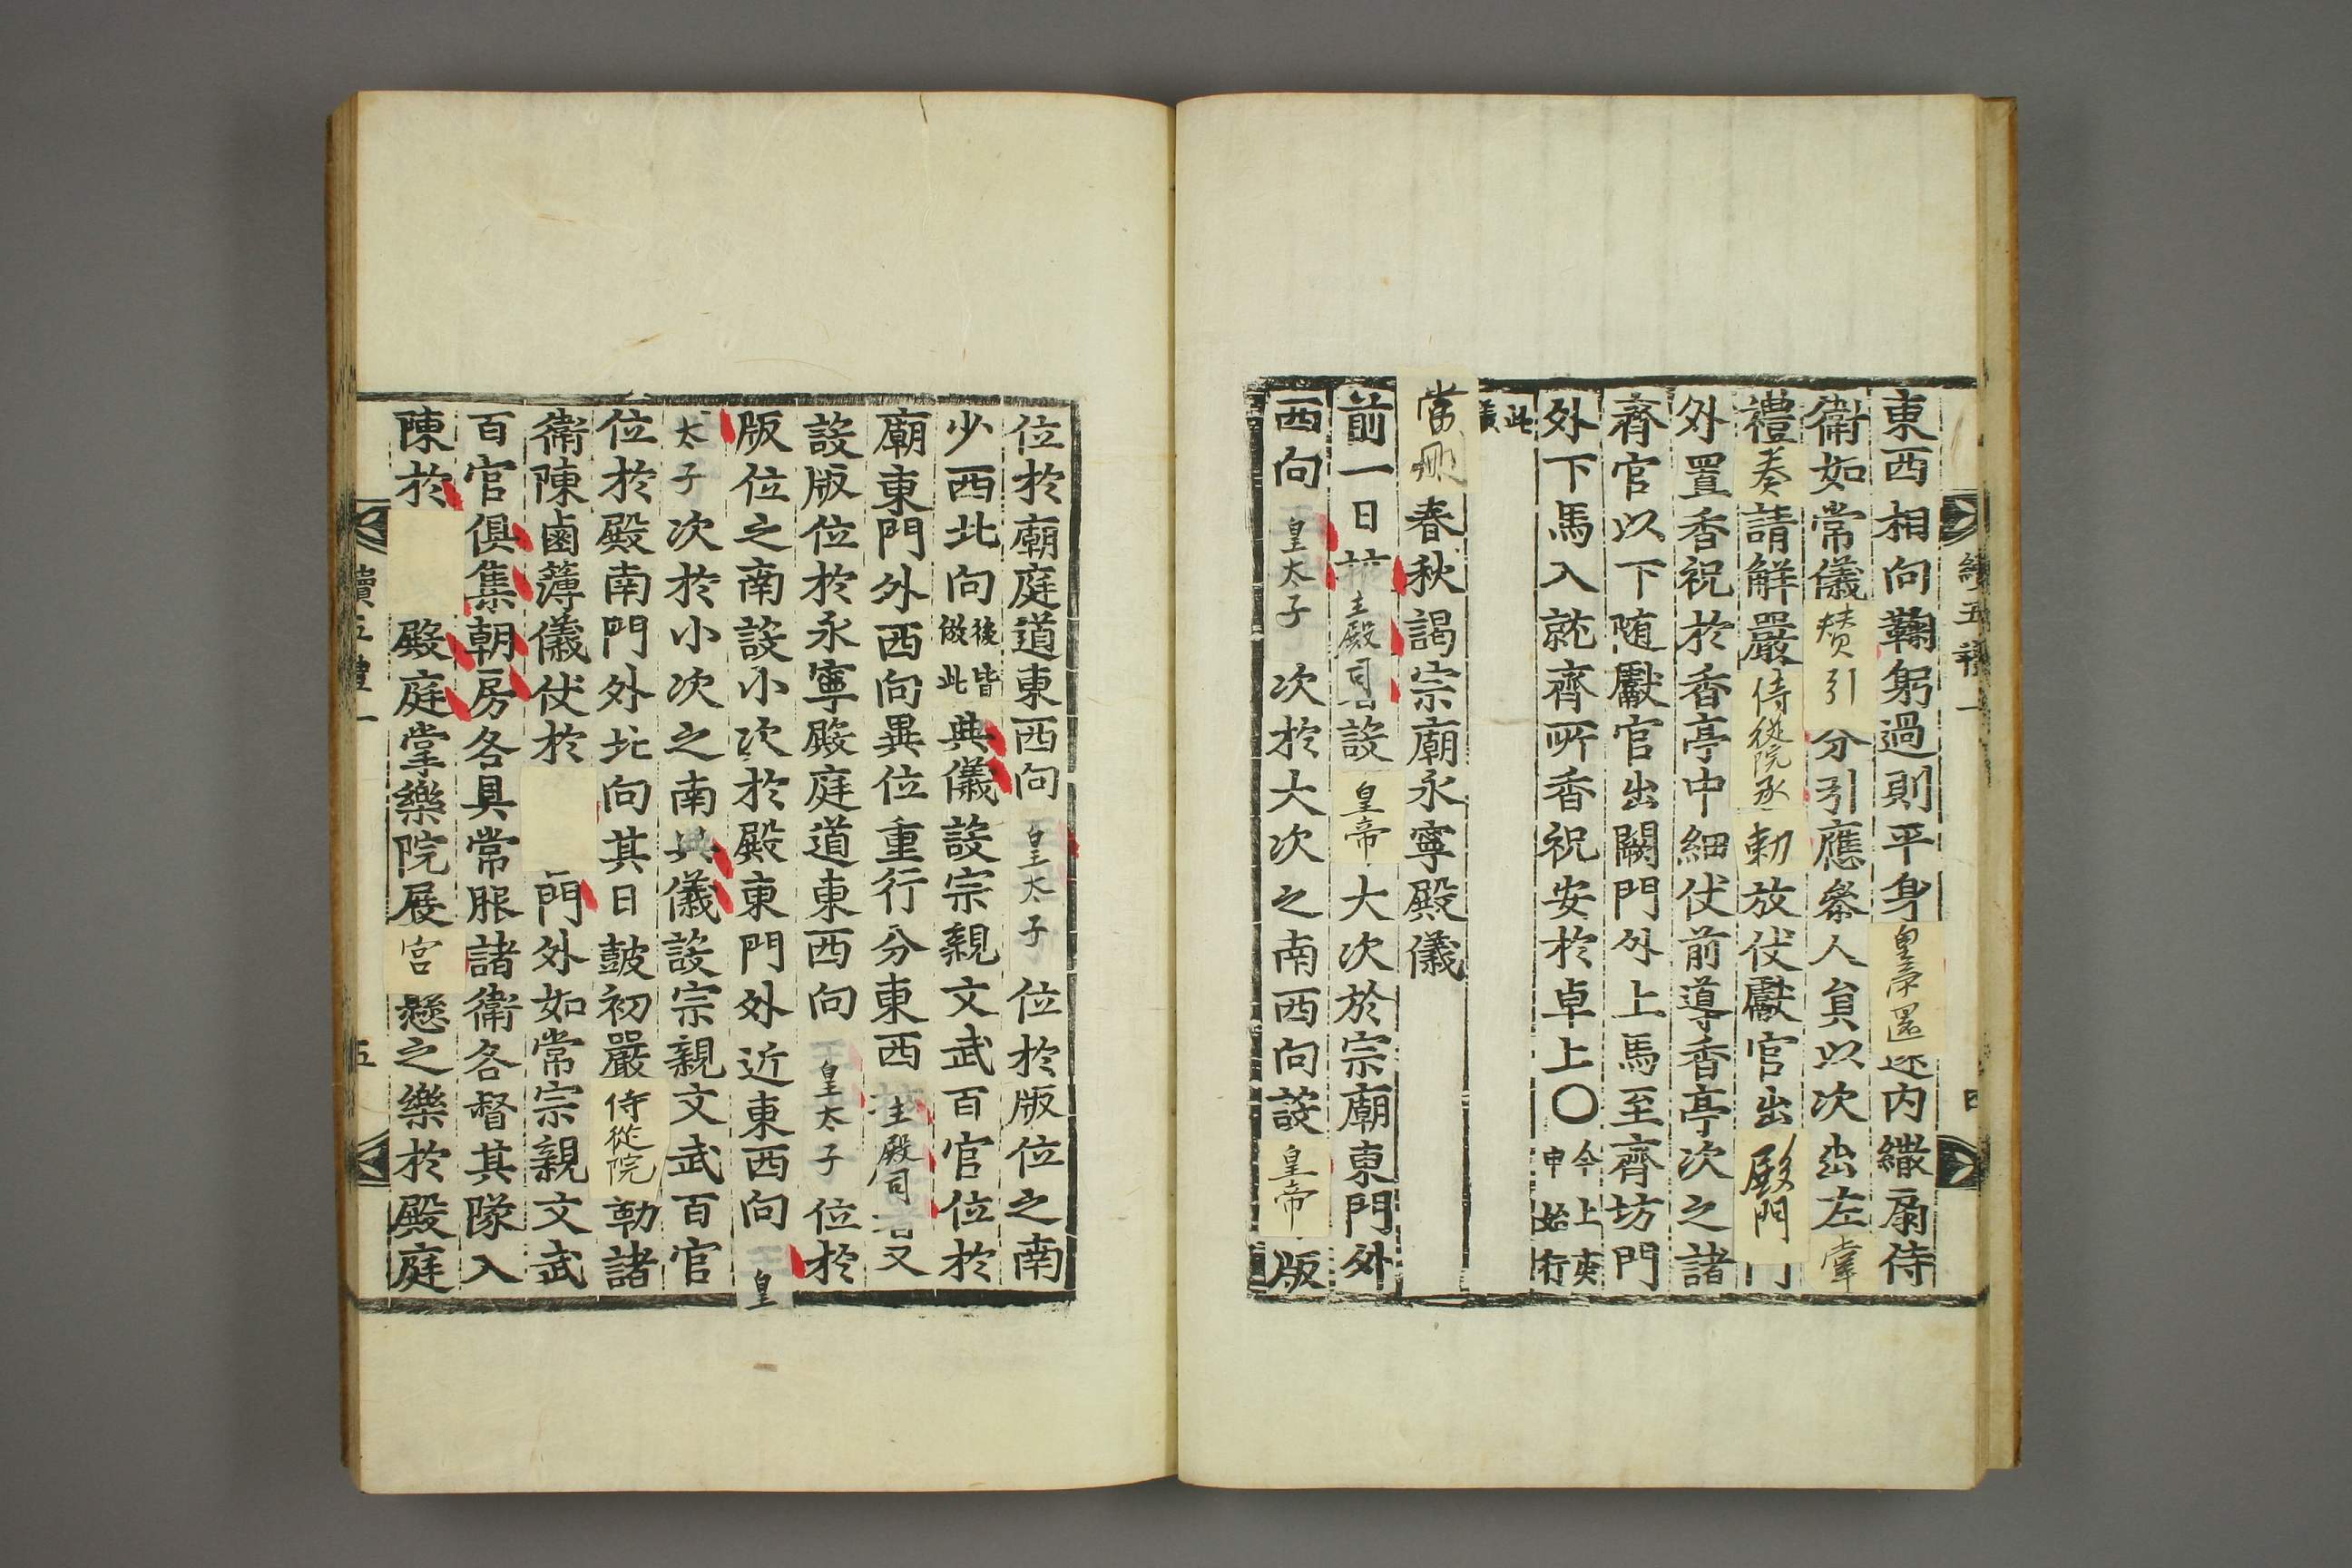 東西相向鞠躬過則平身皇帝還內繖扇侍
衛如常儀賛引分引應參人員以次出左掌
禮奏請解嚴侍從院丞勅放仗獻官出殿門
外置香祝於香亭中細仗前導香亭次之諸
齊官以下隨獻官出闕門外上馬至齊坊門
外下馬入就齊所香祝安於卓上〇今上庚申始行
此
當刪春秋謁宗廟永寧殿儀
前一日主殿司設皇帝大次於宗廟東門外
西向皇太子次於大次之南西向設皇帝版
續五禮一
四
位於廟庭道東西向皇太子位於版位之南
少西北向後皆倣此典儀設宗親文武百官位於
廟東門外西向異位重行分東西主殿司又
設版位於永寧殿庭道東西向皇太子位於
版位之南設小次於殿東門外近東西向皇
太子次於小次之南典儀設宗親文武百官
位於殿南門外北向其日鼓初嚴侍從院勒諸
衛陳鹵簿儀仗於門外如常宗親文武
百官俱集朝房各具常服諸衛各督其隊入
陳於殿庭掌樂院展宮懸之樂於殿庭
續五禮一
五